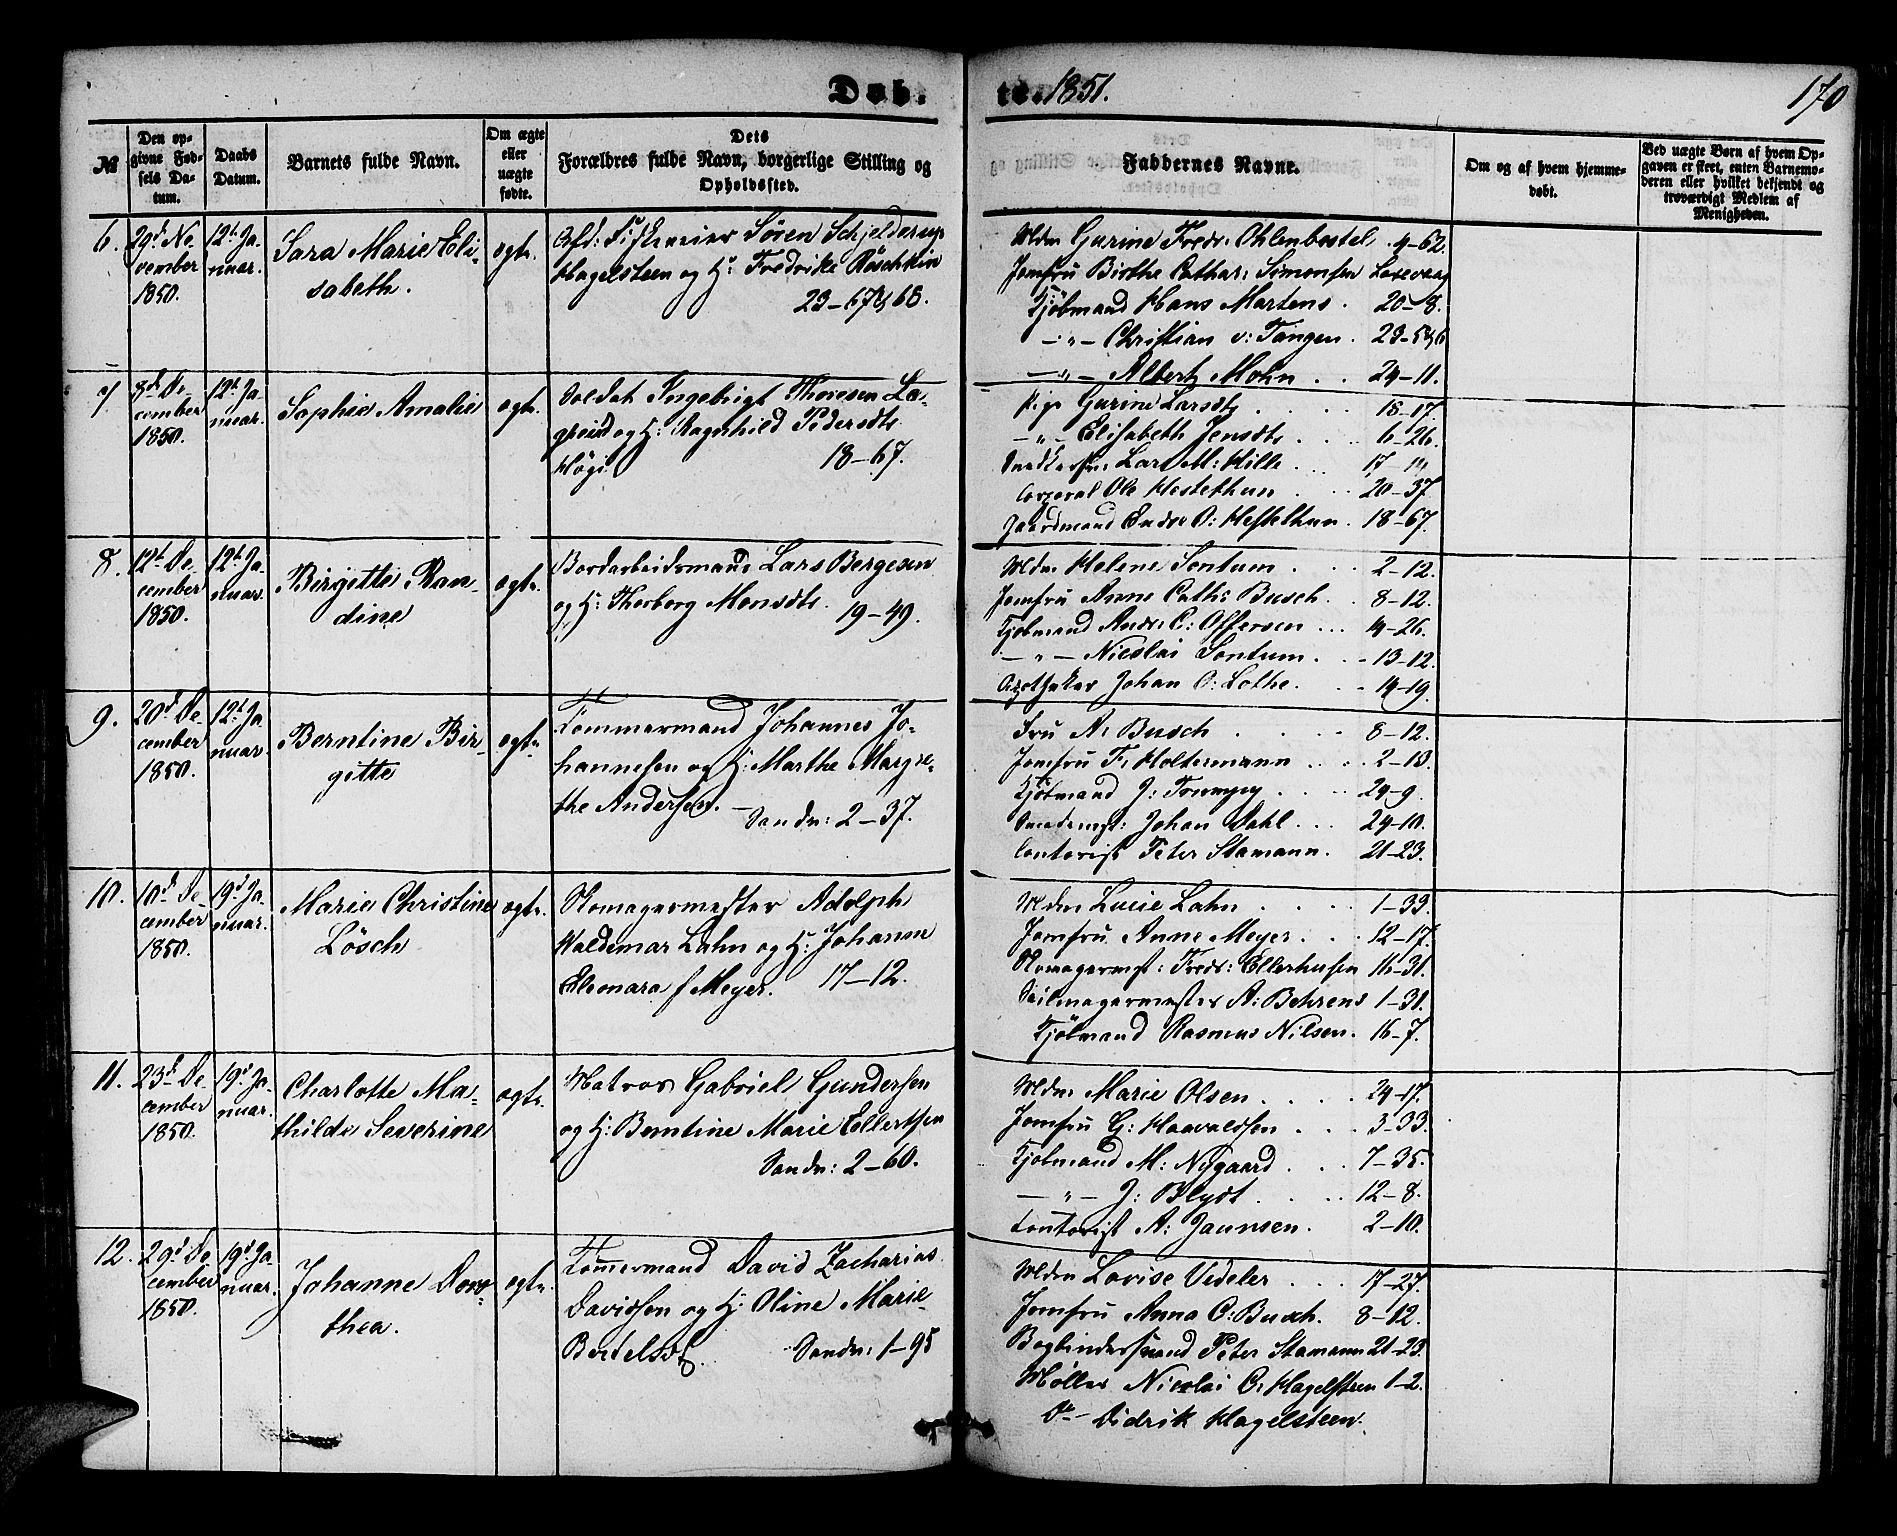 Døb. te. 1851. 170
№
Den op-
givne Fød-
sels Da-
tum.
Daabs
Datum.
Barnets fulde Navn.
Om ægte
eller
uægte
fødte.
Dets
Forældres fulde Navn, borgerlige Stilling og
Opholdssted.
Faddernes Navne.
Om og af hvem hjemme-
døbt.
Ved uægte Børn af hvem Op-
gaven er skeet, enten Barnemo-
deren eller hvilket bekjendt og
troværdigt Medlem af
Menigheden.
6.
29d No-
vember
1850.
12t Ja-
nuar.
Sara Marie Eli-
sabeth.
ægte.
Søren Schjelderup
Hagelsteen og H: Fredrike Röschkin
23-67&68.
Mdm Gurine Fredr: Ohlenbostel. 4-62.
Jomfru Birthe Cathar: Simonsen Laxevaag
Kjøbmand Hans Martens. 20-8.
-"- Christian v: Tangen. 23-5&6
-"- Albert Mohn .. 24-11.
7.
8d De-
cember
1850.
12t Ja-
nuar.
Sophie Amalie
ægte.
Soldat Ingebrigt Thoresen Læ-
greid og H: Ragnhild Pedersdtr
Høgi 18-67.
Pige Gurine Larsdtr .... 18-17.
-"- Elisabeth Jensdtr ... 6-26.
Lars M: Hille ... 17-14
Corporal Ole Hestethun ... 20-37.
Gaardmand Endre O: Hestethun. 18-67.
8.
12t De-
cember
1850.
12t Ja-
nuar.
Birgitte Ran-
dine
ægte.
Bordarbeidsmand Lars Børgesen
og H: Thorborg Monsdtr. 19-49.
Mdm Helene Sontum .... 2-12.
Jomfru Anne Cath: Busch .. 8-12.
Kjøbmand Andr: C: Offersen ... 14-26.
-"- Nicolai Sontum .. 13-12.
Apotheker Johan O: Lothe ... 14-19.
9.
20d De-
cember
1850.
12t Ja-
nuar.
Berntine Bir-
gitte
ægte
Tømmermand Johannes Jo-
hannesen og H: Marthe Margre-
the Andersen. - Sandv: 2-37.
Fru A: Busch .... 8-12.
Jomfru F: Holtermann .... 2-13.
Kjøbmand J: .... 24-9.
Smedemst: Johan Dahl ... 24-10.
Contorist Peter Stamann. 21-23.
10.
10d De-
cember
1850.
19d Ja-
nuar.
Marie Christine
Lösch
ægte.
Skomagermester Adolph
Waldemar Lahn og H: Johanne
Eleonara f Meyer. 17-12.
Mdm Lucie Lahn .... 1-33.
Jomfru Anne Meyer ... 12-17.
Skomagermst: Fredr: Ellerhusen 16-31.
Seilmagermester A: Behrens 1-31.
Kjøbmand Rasmus Nilsen. 16-7.
11.
23d De-
cember
1850.
19d Ja-
nuar.
Charlotte Ma-
thilde Severine
ægte.
Matros Gabriel Gundersen
og H: Berntine Marie Ellertsen
Sandv: 2-60.
Mdm Marie Olsen .... 24-17.
Jomfru G: Haavaldsen ... 3-33.
Kjøbmand M: Nygaard ... 7-35.
-"- J: Blydt .... 12-8.
Contorist A: Jaunsen. 2-10.
12.
29d De-
cember
1850.
19d Ja-
nuar.
Johanne Doro-
thea.
ægte.
Tømmermand David Zacharias
Davidsen og H: Oline Marie
Bertelsdtr. Sandv: 1-95
Mdm Lovise Vedeler ... 17-27.
Jomfru Anna C: Busch. 8-12.
Bogbindersvend Peter Stamann 21-23.
Møller Nicolai C: Hagelsteen 1-2.
Do- Didrik Hagelsteen.